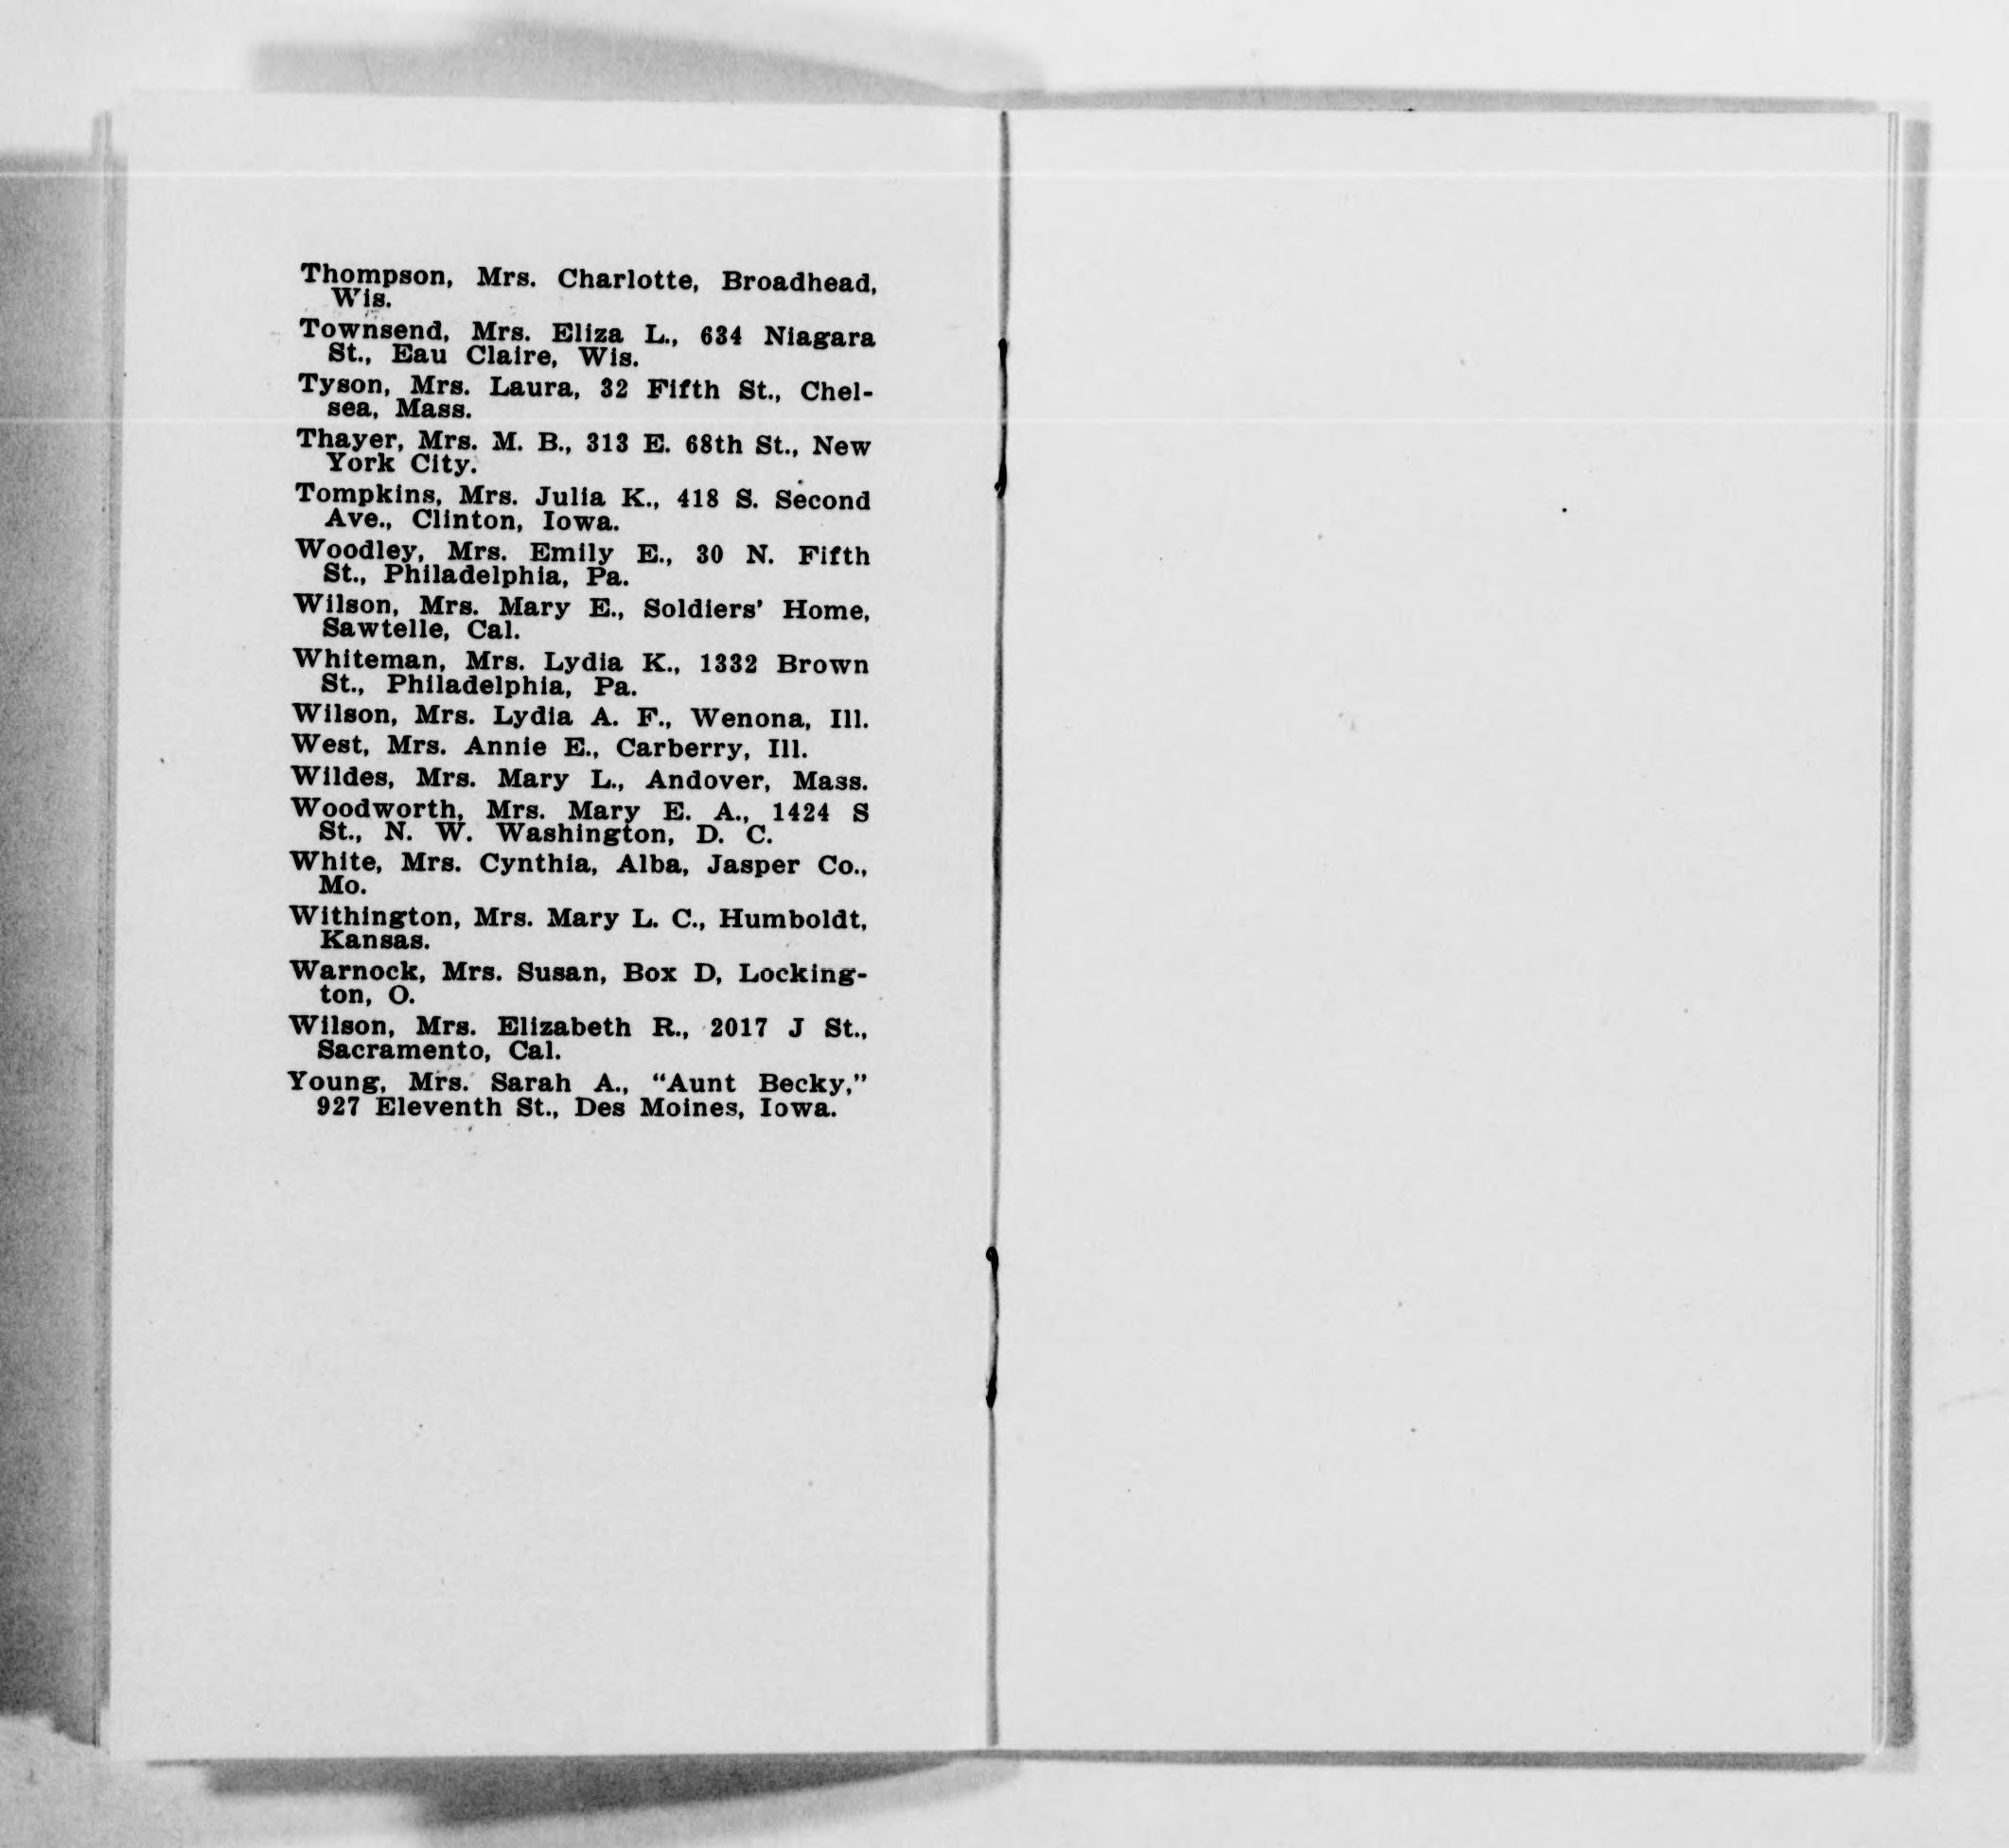 Thompson, Mrs. Charlotte, Broadhead,
Wis.
Townsend, Mrs. Eliza L., 634 Niagara
St., Eau Claire, Wis.
Tyson, Mrs. Laura, 32 Fifth St., Chel-
sea, Mass.
Thayer, Mrs. M. B., 313 E. 68th St., New
York City.
Tompkins, Mrs. Julia K., 418 S. Second
Ave., Clinton, Iowa.
Woodley, Mrs. Emily E., 30 N. Fifth
St., Philadelphia, Pa.
Wilson, Mrs. Mary E., Soldiers' Home,
Sawtelle, Cal.
Whiteman, Mrs. Lydia K., 1332 Brown
St., Philadelphia, Pa.
Wilson, Mrs. Lydia A. F., Wenona, Ill.
West, Mrs. Annie E., Carberry, Ill.
Wildes, Mrs. Mary L., Andover, Mass.
Woodworth, Mrs. Mary E. A., 1424 S
St., N. W. Washington, D. C.
White, Mrs. Cynthia, Alba, Jasper Co.,
Mo.
Withington, Mrs. Mary L. C., Humboldt,
Kansas.
Warnock, Mrs. Susan, Box D, Locking-
ton, O.
Wilson, Mrs. Elizabeth R., 2017 J St.,
Sacramento, Cal.
Young, Mrs. Sarah A., “Aunt Becky,”
927 Eleventh St., Des Moines, Iowa.